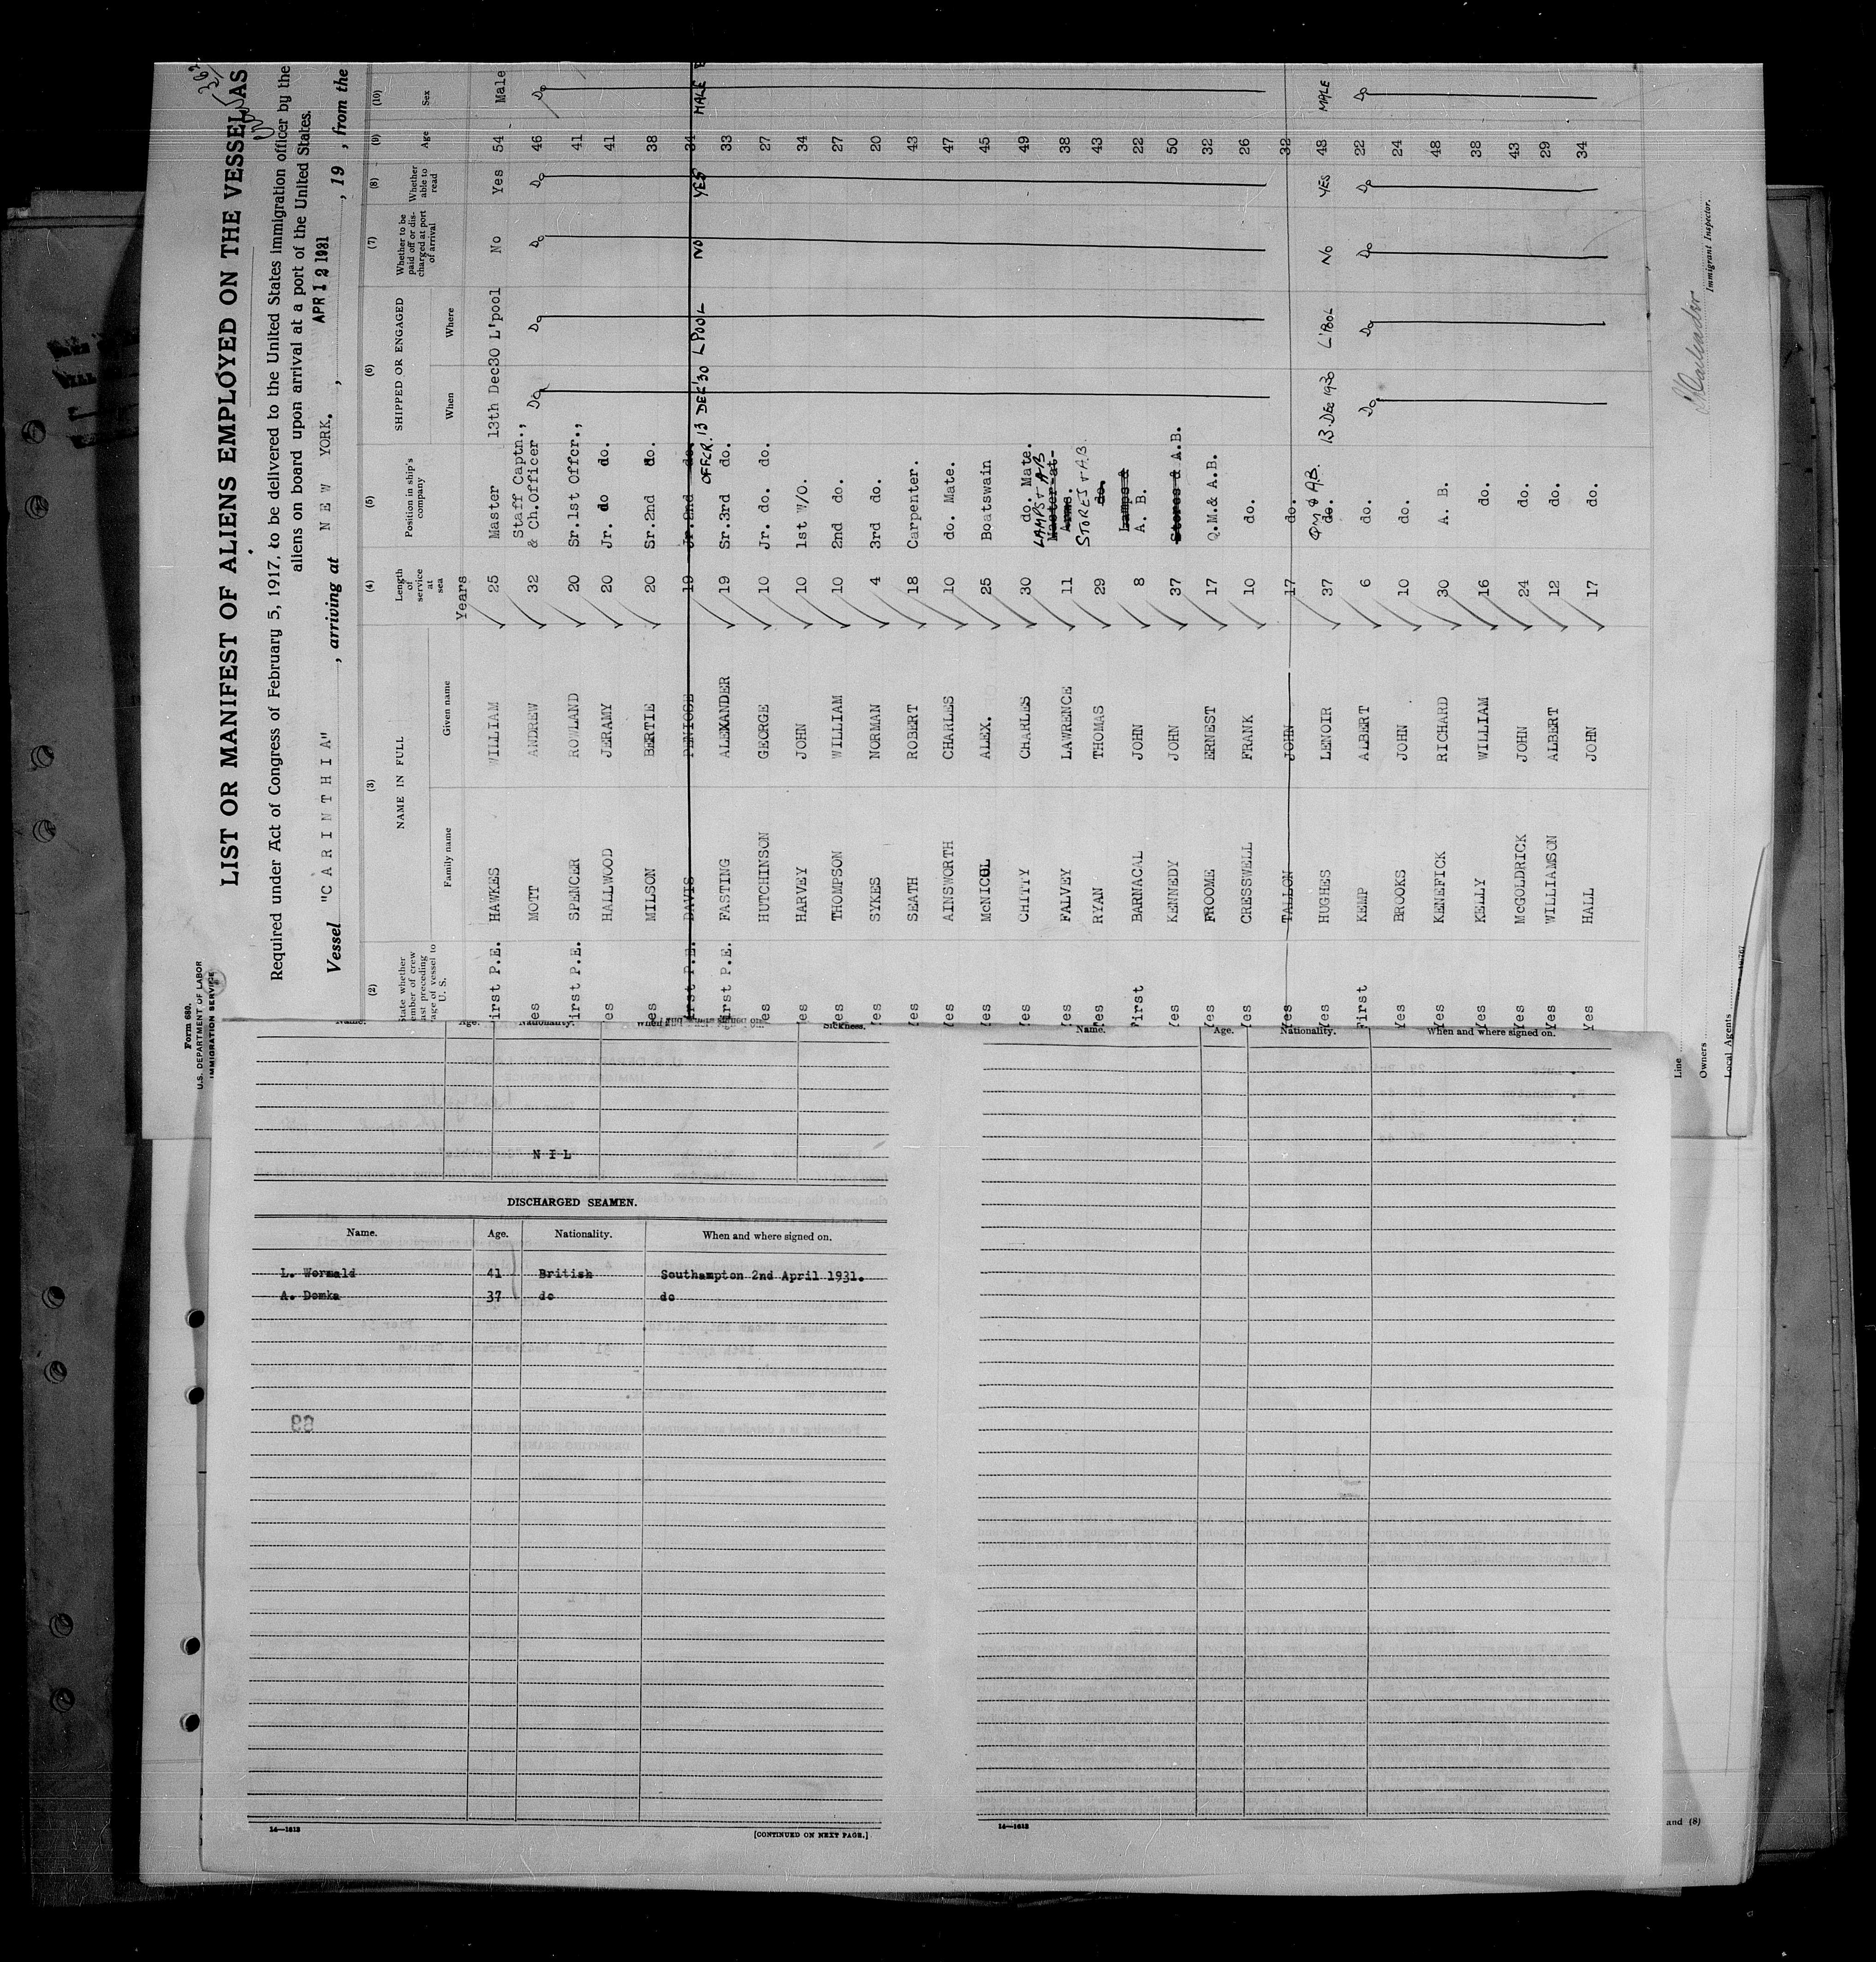 Form 680.
U.S. DEPARTMENT OF LABOR
IMMIGRATION SERVICE
LIST OR MANIFEST OF ALIENS EMPLOYED ON THE VESSEL AS
Required under Act of Congress of February 5, 1917, to be delivered to the United States immigration officer by the
aliens on board upon arrival at a port of the United States.
Vessel "CARINTHIA", arriving at NEW YORK., APR 12 1931, 19 , from the
(2) (3) (4) (5) (6) (7) (8) (9) (10)
NAME IN FULL SHIPPED OR ENGAGED
Family name Given name Length of service at sea Position in ship's company When Where Whether to be paid off or discharged at port of arrival Whether able to read Age Sex
Years
First P.E. HAWKES WILLIAM 25 Master 13th Dec30 L'pool No Yes 54 Male
Yes MOTT ANDREW 32 Staff Captn., & Ch.Officer Do Do Do Do 46 Do
First P.E. SPENCER ROWLAND 20 Sr.1st Offcr., 41
Yes HALLWOOD JERAMY 20 Jr. do do. 41
Yes MILSON BERTIE 20 Sr.2nd do. 38
First P.E. DAVIS 19 Jr.2nd do. 34
First P.E. FASTING ALEXANDER 19 Sr.3rd do. OFFCR. 13 DEC'30 LPOOL NO YES 33 MALE
Yes HUTCHINSON GEORGE 10 Jr. do. do. 27
Yes HARVEY JOHN 10 1st W/O. 34
Yes THOMPSON WILLIAM 10 2nd do. 27
Yes SYKES NORMAN 4 3rd do. 20
Yes SEATH ROBERT 18 Carpenter. 43
Yes AINSWORTH CHARLES 10 do. Mate. 47
Yes McNICOL ALEX. 25 Boatswain 45
Yes CHITTY CHARLES 30 do. Mate. 49
Yes FALVEY LAWRENCE 11 LAMPS & AB Master-at-Arms. 38
Yes RYAN THOMAS 29 STORES & A.B. do. 43
First BARNACAL JOHN 8 Lamps & A. B. 22
Yes KENNEDY JOHN 37 Stores & A.B. 50
Yes FROOME ERNEST 17 Q.M.& A.B. 32
Yes CRESSWELL FRANK 10 do. 26
Yes TALLON JOHN 17 do. 32
Yes HUGHES LENOIR 37 QM & A.B. do. 13 Dec 1930 L'POOL No YES 48 MALE
First KEMP ALBERT 6 do. Do Do Do Do 22 Do
Yes BROOKS JOHN 10 do. 24
Yes KENEFICK RICHARD 30 A. B. 48
Yes KELLY WILLIAM 16 do. 38
Yes McGOLDRICK JOHN 24 do. 43
Yes WILLIAMSON ALBERT 12 do. 29
Yes HALL JOHN 17 do. 34
Line
Owners
Local Agents
Immigrant Inspector.
Name. Age. Nationality. Sickness.
NIL
DISCHARGED SEAMEN.
Name. Age. Nationality. When and where signed on.
L. Wormald 41 British Southampton 2nd April 1931.
A. Domka 37 do do
14—1613
[CONTINUED ON NEXT PAGE.]
Name. Age. Nationality. When and where signed on.
14—1613
and (8)